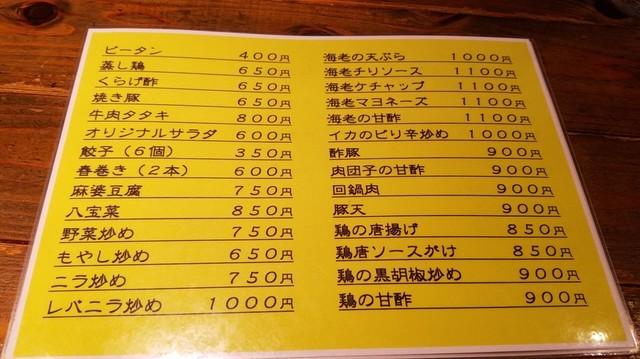 ピータン ４００円
蒸し鶏 ６５０円
くらげ酢 ６５０円
焼き豚 ６５０円
牛肉タタキ ８００円
オリジナルサラダ ６００円
餃子（６個） ３５０円
春巻き（２本） ６００円
麻婆豆腐 ７５０円
八宝菜 ８５０円
野菜炒め ７５０円
もやし炒め ６５０円
ニラ炒め ７５０円
レバニラ炒め １０００円
海老の天ぷら １０００円
海老チリソース １１００円
海老ケチャップ １１００円
海老マヨネーズ １１００円
海老の甘酢 １１００円
イカのピリ辛炒め １０００円
酢豚 ９００円
肉団子の甘酢 ９００円
回鍋肉 ９００円
豚天 ９００円
鶏の唐揚げ ８５０円
鶏唐ソースがけ ８５０円
鶏の黒胡椒炒め ９００円
鶏の甘酢 ９００円